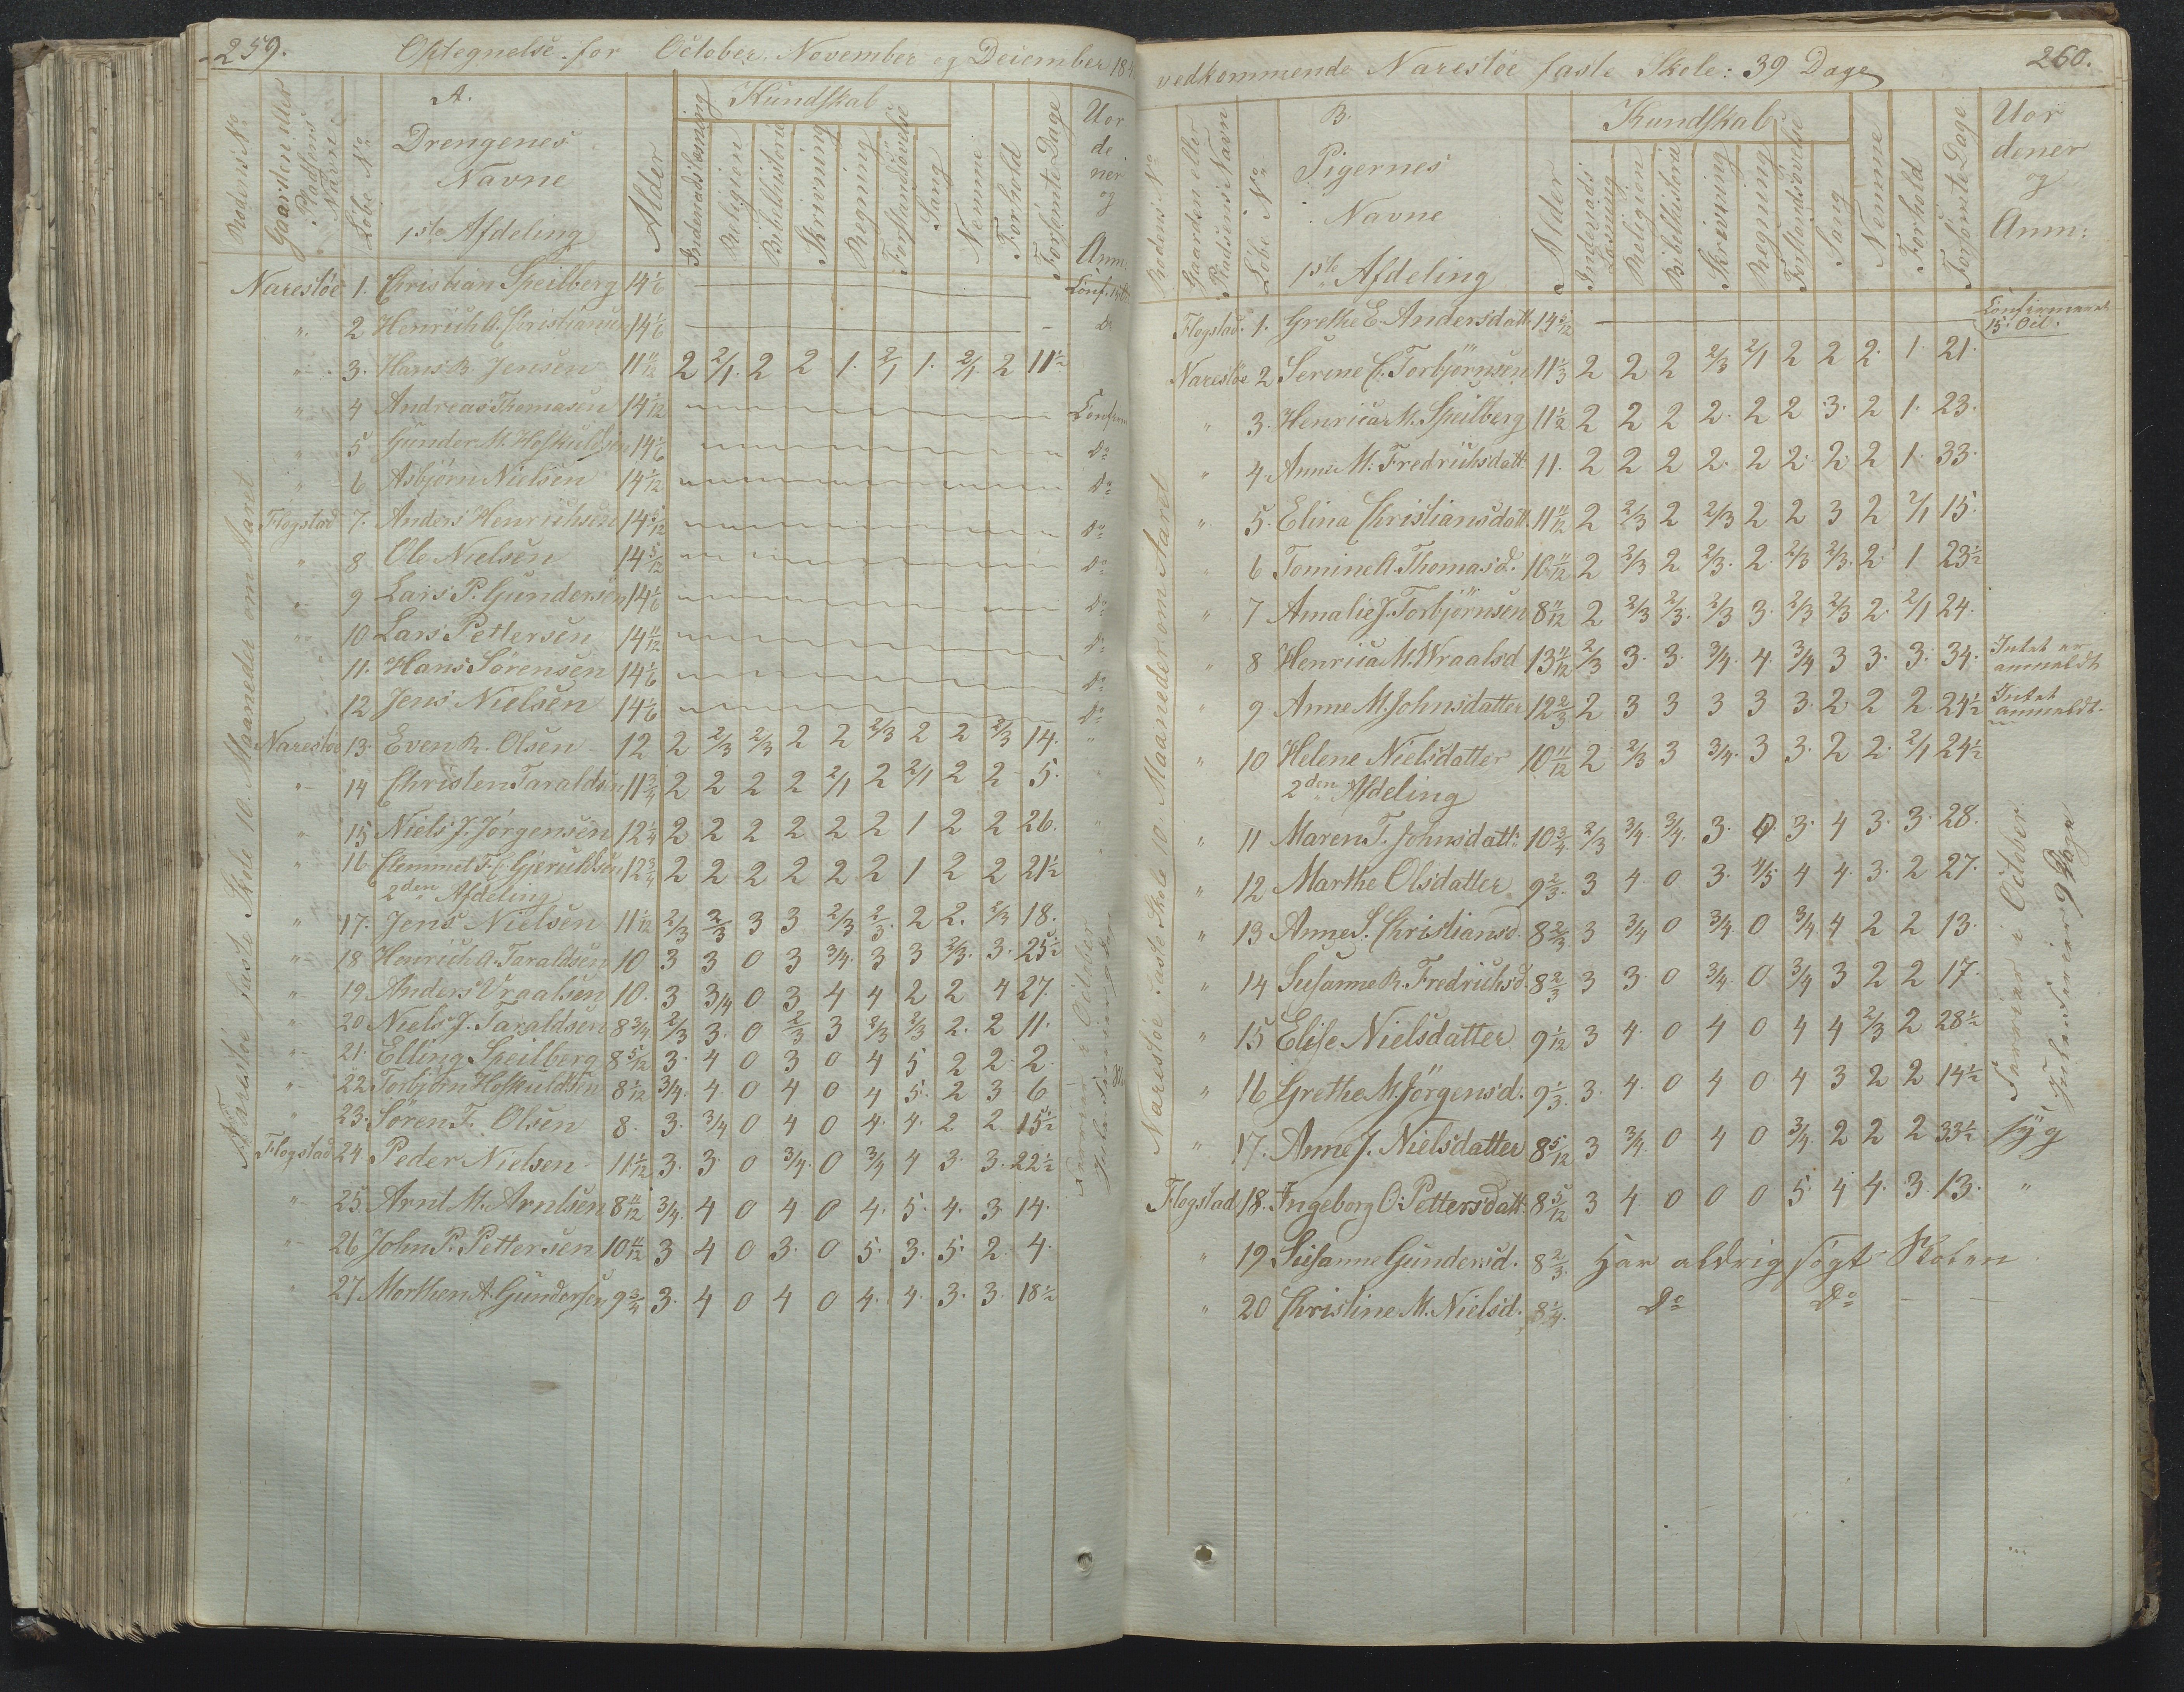 259.
Optegnelse for October, November og December 18
A.
Drengenes
Navne
1ste Afdeling
Kundskab
Rodens No
Gaardens eller Pladsens Navn
Løbe No
Alder
Indenadslæsning
Religion
Bibelhistorie
Skrivning
Regning
Forstandsøvelse
Sang
Nemme
Forhold
Forsømte Dage
Uor
de
ner
og
Anm.
Naresløe 1. Christian Speilberg 14 1/6
" 2 Henrich A. Christiansen 14 1/6 Do
" 3. Hans R. Jensen 11 11/12 2 2/1. 2 2 1. 2/1 1. 2/1 2 11 1/2
" 4 Andreas Thomasen 14 1/12 Confirm
" 5 Gunder M. Hofsuldsen 14 1/6 Do
" 6 Asbjørn Nielsen 14 1/12 Do
Flogstad 7. Anders Henrichsen 14 5/12 Do
" 8 Ole Nielsen 14 5/12 Do
" 9 Lars P. Gundersen 14 1/6 Do
" 10 Lars Pettersen 14 11/12 Do
11. Hans Sørensen 14 1/6 Do
12 Jens Nielsen 14 1/6 Do
Naresløe 13. Even R. Olsen 12 2 2/3 2/3 2 2 2/3 2 2 2/3 14.
" 14 Christen Taraldsen 11 3/4 2 2 2 2 2/1 2 2/1 2 2 5.
" 15 Niels J. Jørgensen 12 1/4 2 2 2 2 2 2 1 2 2 26.
" 16 Clemmet F. C. 12 3/4 2 2 2 2 2 2 1 2 2 21 1/2
2den Afdeling
" 17. Jens Nielsen 11 1/12 2/3 2/3 3 3 2/3 2/3. 2 2. 2/3 18.
" 18 Henrich A. Taraldsen 10 3 3 0 3 3/4. 3 3 2/3. 3. 25 1/2
" 19 Anders Vraalsen 10. 3 3/4 0 3 4 4 2 2 4 27.
" 20 Niels J. Taraldsen 8 3/4 2/3 3. 0 2/3 3 2/3 2/3 2. 2 11.
" 21. Elling Speilberg 8 5/12 3. 4 0 3 0 4 5 2 2. 2.
" 22 Torbjørn Hofsuldsen 8 1/12 3/4. 4 0 4 0 4 5. 2 3 6
" 23. Søren T. Olsen 8. 3. 3/4 0 4 0 4. 4. 2 2. 15 1/2
Flogstad 24 Peder Nielsen 11 1/12 3. 3. 0 3/4. 0 3/4 4 3. 3. 22 1/2
" 25. Arnt M. Arntsen 8 11/12 3/4. 4 0 4 0 4. 5. 4. 3. 14.
" 26 John P. Pettersen 10 11/12 3 4 0 3. 0 5. 3. 5. 2. 4.
" 27 Morthen A. Gundersen 9 3/4 3. 4 0 4 0 4. 4. 3. 3. 18 1/2
Naresløe faste Skole 10. Maaneder om Aaret
Ferier i October
260.
vedkommende Naresløe faste Skole: 39 Dage
B.
Pigernes
Navne
1ste Afdeling
Kundskab
Rodens No
Gaardens eller Pladsens Navn
Løbe No
Alder
Indenads Læsning
Religion
Bibelhistorie
Skrivning
Regning
Forstandsøvelse
Sang
Nemme
Forhold
Forsømte Dage
Uor
dener
og
Anm:
Flogstad. 1. Grethe E. Andersdatt. 14 5/12 Confirmeret 15. Oct.
Naresløe 2 Serine C. Torbjørnsen 11 1/3 2 2 2 2/3 2/1 2 2 2. 1. 21.
" 3. Henrica M. Speilberg 11 1/2 2 2 2 2. 2 2 3. 2 1. 23.
" 4. Anna M. Fredrichsdatt. 11. 2 2 2 2. 2 2. 2. 2 1. 33.
" 5. Elina Christiansdatt. 11 11/12 2 2/3 2 2/3 2 2 3 2 2/1 15.
" 6 Tomine A. Thomasd. 10 11/12 2 2/3 2 2/3. 2. 2/3 2/3. 2. 1 23 1/2
" 7 Amalie J. Torbjørnsen 8 11/12 2 2/3 2/3. 2/3 3. 2/3 2/3 2. 2/1 24.
" 8 Henrica M. Wraalsd 13 11/12 2/3 3. 3. 3/4. 4. 3/4 3 3. 3. 34. Intet er anmeldt
" 9 Anne M. Johnsdatter 12 2/3 2 3 3 3 3 3. 2. 2 2. 24 1/2 Intet anmeldt.
" 10 Helene Nielsdatter 10 11/12 2 2/3 3 3/4. 3 3. 2 2. 2/1 24 1/2
2den Afdeling
" 11 Maren T. Johnsdatt: 10 3/4 2/3 3/4. 3/4. 3. 0. 3. 4 3. 3. 28.
" 12 Marthe Olsdatter 9 2/3. 3 4. 0 3. 4/5 4 4. 3. 2 27.
" 13 Anne S. Christiansd. 8 2/3 3 3/4 0 3/4 0 3/4 4 2 2 13.
" 14 Susanne R. Fredrichsd. 8 2/3 3 3. 0 3/4. 0 3/4 3 2 2 17.
" 15 Elise Nielsdatter 9 1/12 3 4. 0 4 0 4 4 2/3 2 28 1/2
" 16 Grethe M. Jörgensd. 9 1/3. 3. 4. 0 4 0 4 3 2 2 14 1/2
" 17. Anne J. Nielsdatter 8 5/12 3 3/4. 0 4 0 3/4. 2 2 2 33 1/2 syg
Flogstad 18. Ingeborg O. Pettersdatt. 8 5/12 3 4. 0 0 0 5. 4 4. 3. 13. "
" 19 Susanne Gundersd. 8 2/3. Har aldrig søgt Skolen
" 20 Christine M. Nielsd. 8 1/4. Do Do
Naresløe faste Skole 10. Maaneder om Aaret
Ferier i October
Juleferier 9 Dage